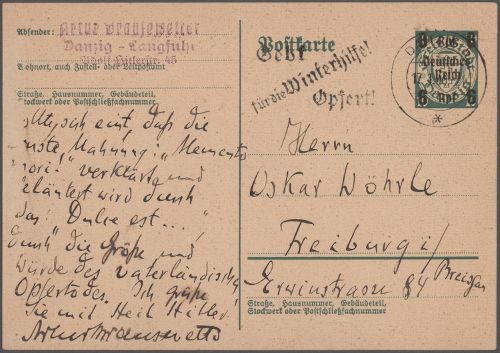 Absender:
Artur Brausewetter
Danzig - Langfuhr
Adolf Hitlerstr. 45
Wohnort, auch Zustell- oder Leitpostamt
Straße, Hausnummer, Gebäudeteil,
Stockwerk oder Postschließfachnummer
Postkarte
Gebt
für die Winterhilfe!
Opfert!
6 6
Deutsches
Reich
6 Rpf 6
daß die
Mahnung: "Memento
mori" verklärt und
geläutert wird durch
das: Dulce est..."
durch die Größe und
Würde des vaterländischen
Opfertodes. Ich grüße
Sie mit Heil Hitler!
Herrn
Oskar Wöhrle
Freiburg i/
Breisgau
Erwinstrasse 84
Straße, Hausnummer, Gebäudeteil,
Stockwerk oder Postschließfachnummer